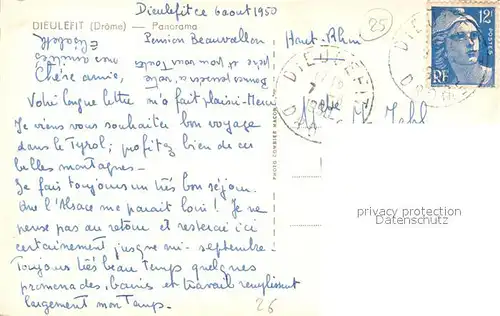 Dieulefit ce 6 aout 1950
DIEULEFIT (Drôme) — Panorama
25
12F
POSTES
RF
Pension Beauvallon
Haut-Rhin
DIEULEFIT
Bonnes vacances à votre
père et pour vous
mes amitiés
Elisabeth
Chère amie,
Votre longue lettre m'a fait plaisir. Merci
Je viens vous souhaiter bon voyage
dans le Tyrol; profitez bien de ces
belles montagnes.
Je fais toujours un très bon séjour.
Que l'Alsace me parait loin! Je ne
pense pas au retour et resterai ici
certainement jusque mi-septembre.
Toujours très beau temps quelques
promenades, bains et travail remplissent
largement mon temps.
26
PHOTO COMBIER MACON
privacy protection
Datenschutz